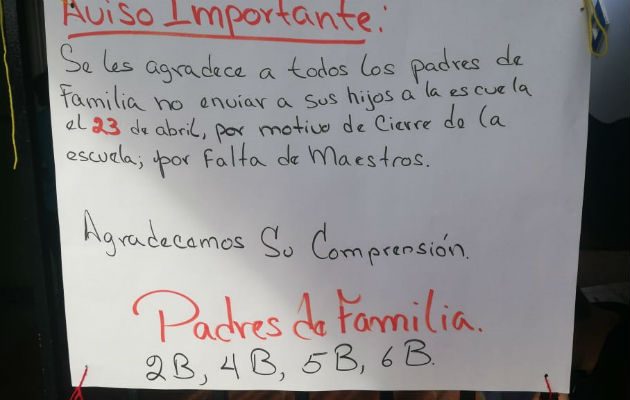 Aviso Importante:
Se les agradece a todos los padres de
Familia no enviar a sus hijos a la escuela
el 23 de abril, por motivo de Cierre de la
escuela; por Falta de Maestros.
Agradecemos Su Comprensión.
Padres de Familia.
2B, 4B, 5B, 6B.